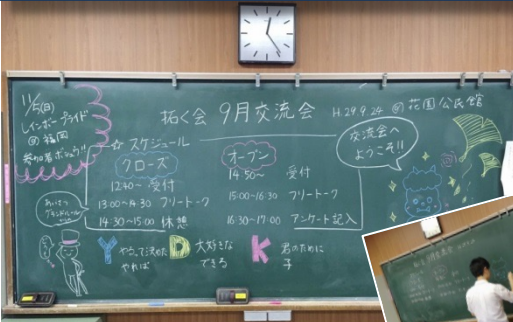 11/5(日)
レインボープライド
@福岡
参加者ボシュウ!!
拓く会 9月交流会
H.29.9.24 @花園公民館
☆スケジュール
クローズ
12:40~ 受付
13:00~14:30 フリートーク
14:30~15:00 休憩
オープン
14:50~ 受付
15:00~16:30 フリートーク
16:30~17:00 アンケート記入
交流会へ
ようこそ!!
あいさつ
グランドルール
Y やろうって決めた
やれば
D 大好きな
できる
K 君のために
子
12
拓く会 9月交流会